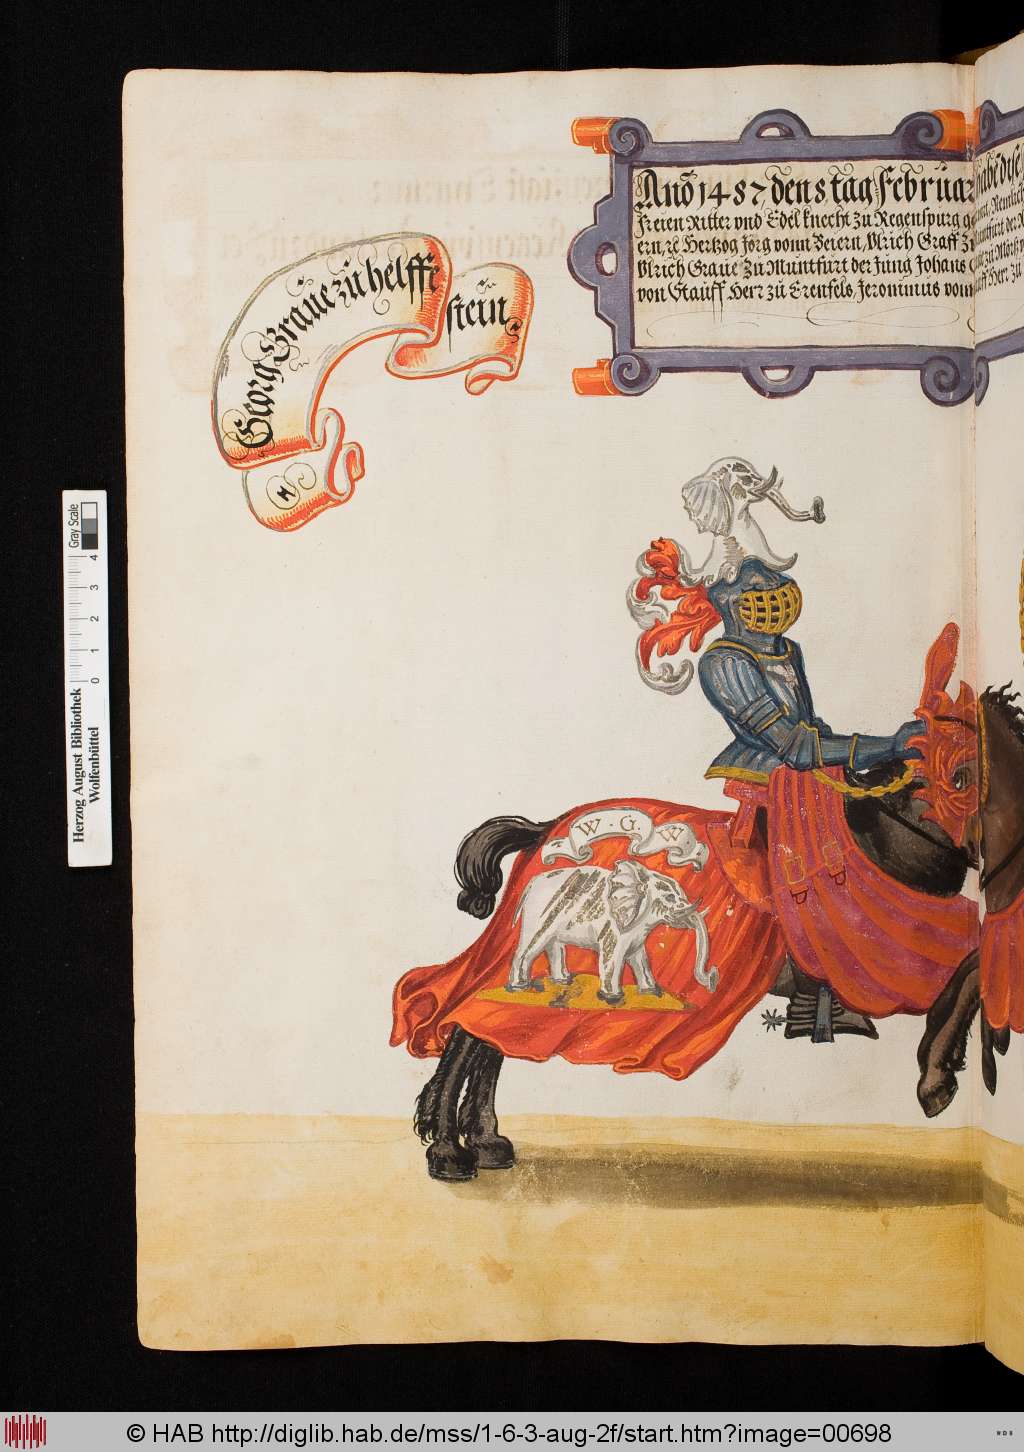 Georg Graue zu helffe
stein
H
Anō 1487 dens tag Februar
Freien Ritter vnd Edel knecht zu Regenspurg
ern, Hertzog Jörg vonn Beiern, Vlrich Graff Zu
Vlrich Graue Zu Muntfurt der Jung Johans
von Stauff Herr zu Erenfels, Jeronimus vom
W · G · W
Herzog August Bibliothek
Wolfenbüttel
0 1 2 3 4
Gray Scale
© HAB http://diglib.hab.de/mss/1-6-3-aug-2f/start.htm?image=00698
WDB